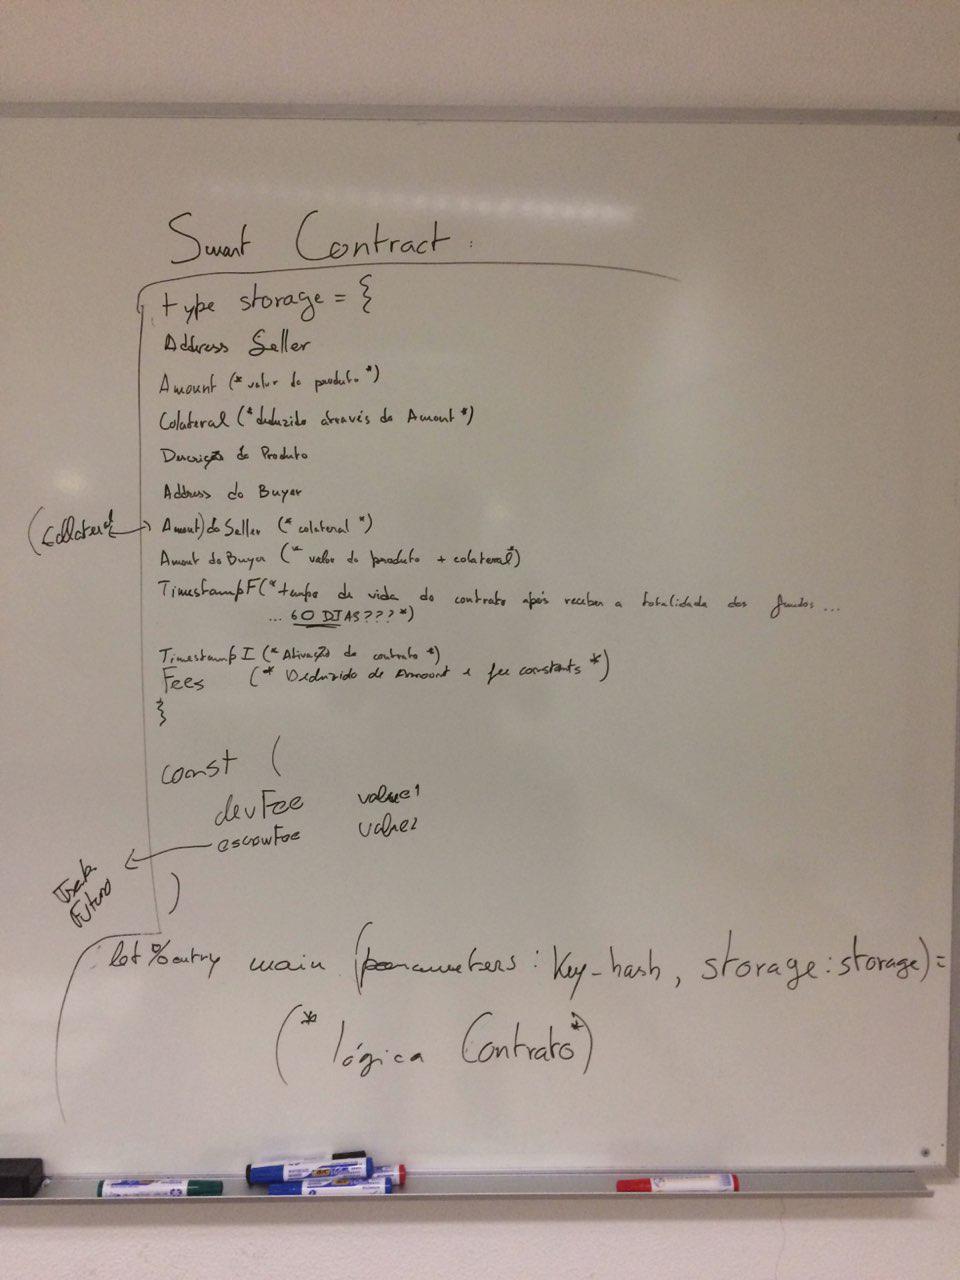 Smart Contract :
type storage = {
Address Seller
Amount (* valor do produto *)
Colateral (* deduzido através do Amount *)
Descrição do Produto
Address do Buyer
(Collateral
Amount) do Seller (* colateral *)
Amount do Buyer (* valor do produto + colateral *)
TimestampF (* tempo de vida do contrato após receber a totalidade dos fundos ...
... 60 DIAS??? *)
Timestamp I (* Ativação do contrato *)
Fees (* Deduzido de Amoount e fee constants *)
}
const (
devFee value1
escrowFee value2
Futuro
)
let%entry main (parameters : Key_hash, storage : storage) =
(* lógica Contrato *)